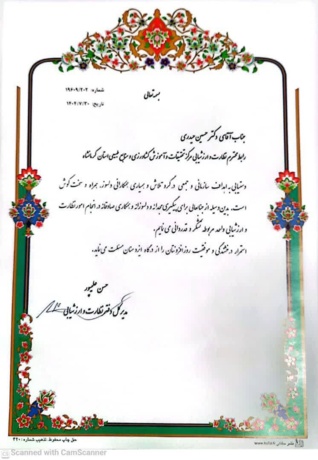 شماره: ۱۹۶۰۹/۲۰۲
تاریخ: ۱۴۰۲/۷/۳۰
بسمه تعالی
جناب آقای دکتر حسین حیدری
رابط محترم نظارت و ارزشیابی مرکز تحقیقات و آموزش کشاورزی و منابع طبیعی استان کرمانشاه
دستیابی به اهداف سازمانی و جمعی در گرو تلاش و همیاری همکارانی دلسوز، همراه و سخت کوش
است. بدین وسیله از جنابعالی برای پیگیری مجدانه و دلسوزانه و همکاری صادقانه در انجام امور نظارت
و ارزشیابی واحد مربوطه تشکر و قدردانی می نمایم.
استمرار درخشندگی و موفقیت روزافزونتان را از درگاه ایزد منان مسئلت می نماید.
حسن علیپور
مدیرکل دفتر نظارت و ارزشیابی
حق چاپ محفوظ تذهیب شماره: ۲۲۰
Scanned with CamScanner